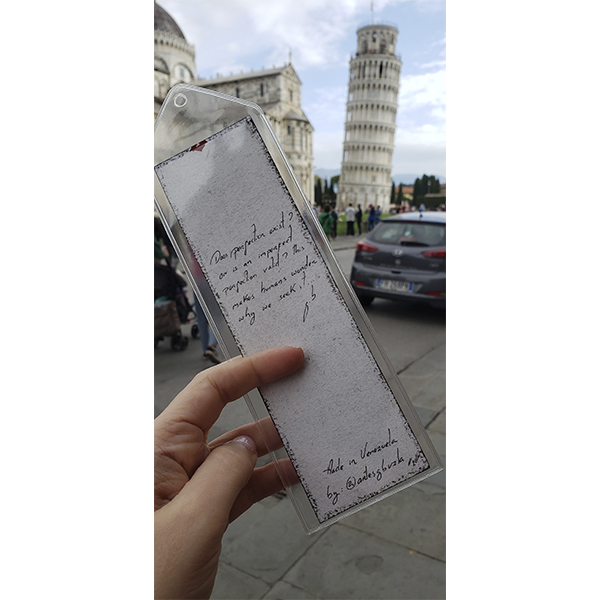 Does perfection exist?
or is an imperfect
perfection valid? this
makes humans wonder
why we seek it.
Made in Venezuela
by: @artesgbuzk